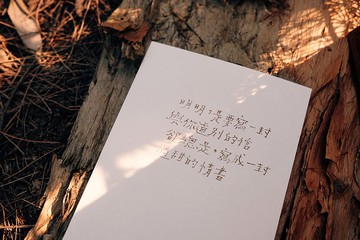 明明是要寫一封
與你道別的信
卻總是，寫成一封
生朝的情書